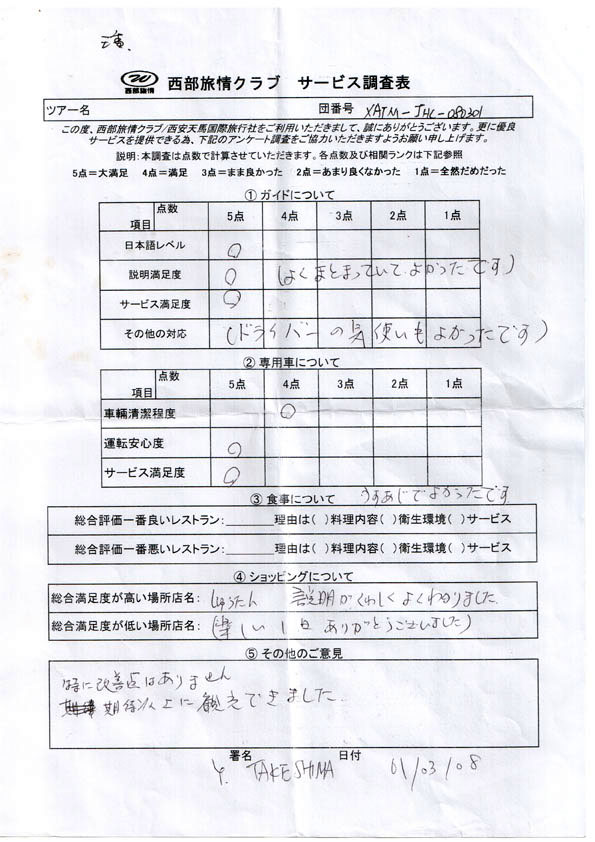 西部旅情
西部旅情クラブ サービス調査表
ツアー名 団番号 XATM-JHC-080301
この度、西部旅情クラブ/西安天馬国際旅行社をご利用いただきまして、誠にありがとうございます。更に優良
サービスを提供できる為、下記のアンケート調査をご協力いただきますようお願い申し上げます。
説明:本調査は点数で計算させていただきます。各点数及び相関ランクは下記参照
5点=大満足 4点=満足 3点=まま良かった 2点=あまり良くなかった 1点=全然だめだった
①ガイドについて
点数 項目 5点 4点 3点 2点 1点
日本語レベル ○
説明満足度 ○ (よくまとまっていてよかったです)
サービス満足度 ○
その他の対応 (ドライバーの気使いもよかったです)
②専用車について
点数 項目 5点 4点 3点 2点 1点
車輛清潔程度 ○
運転安心度 ○
サービス満足度 ○
③食事について うすあじでよかったです
総合評価一番良いレストラン:______理由は( )料理内容( )衛生環境( )サービス
総合評価一番悪いレストラン:______理由は( )料理内容( )衛生環境( )サービス
④ショッピングについて
総合満足度が高い場所店名: じゅうたん 説明がくわしくよくわかりました.
総合満足度が低い場所店名: (楽しい1日ありがとうございました)
⑤その他のご意見
特に改善点はありません
期待以上に観光できました.
署名 日付
Y. TAKESHIMA 01/03/08